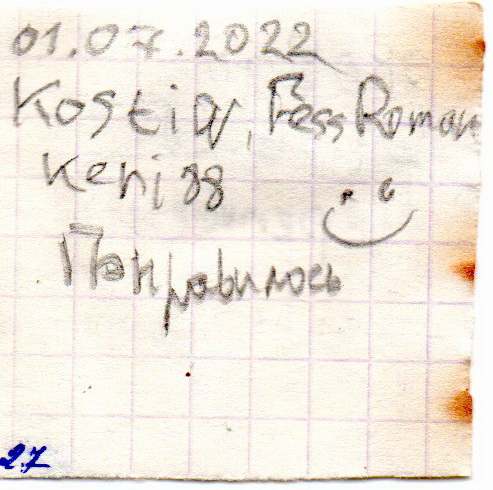 01.07.2022
Kostiar, Fess Roman
Keni88
Понравилось
27